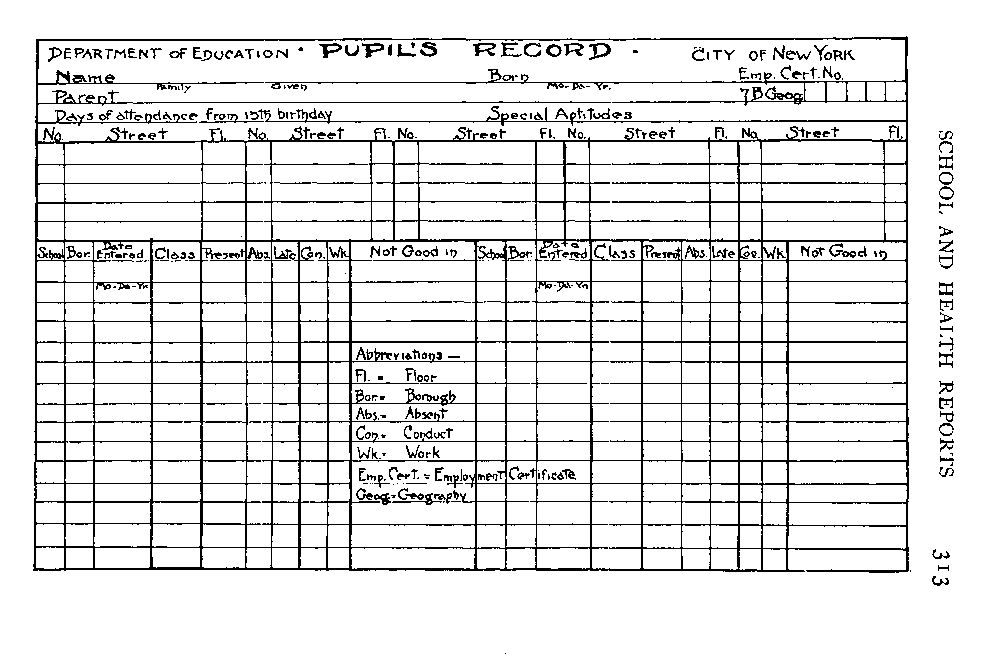 DEPARTMENT OF EDUCATION · PUPIL'S RECORD · CITY OF NEW YORK
Name Born Emp. Cert. No.
Family Given Mo-Da-Yr.
Parent 7B Geog
Days of attendance from 13th birthday Special Aptitudes
No. Street Fl. No. Street Fl. No. Street Fl. No. Street Fl. No. Street Fl.
School Bor. Date Entered Class Present Abs. Late Con. Wk. Not Good in School Bor. Date Entered Class Present Abs. Late Con. Wk. Not Good in
Mo-Da-Yr. Mo-Da-Yr.
Abbreviations —
Fl. = Floor
Bor. = Borough
Abs. = Absent
Con. = Conduct
Wk. = Work
Emp. Cert. = Employment Certificate
Geog = Geography
SCHOOL AND HEALTH REPORTS 313